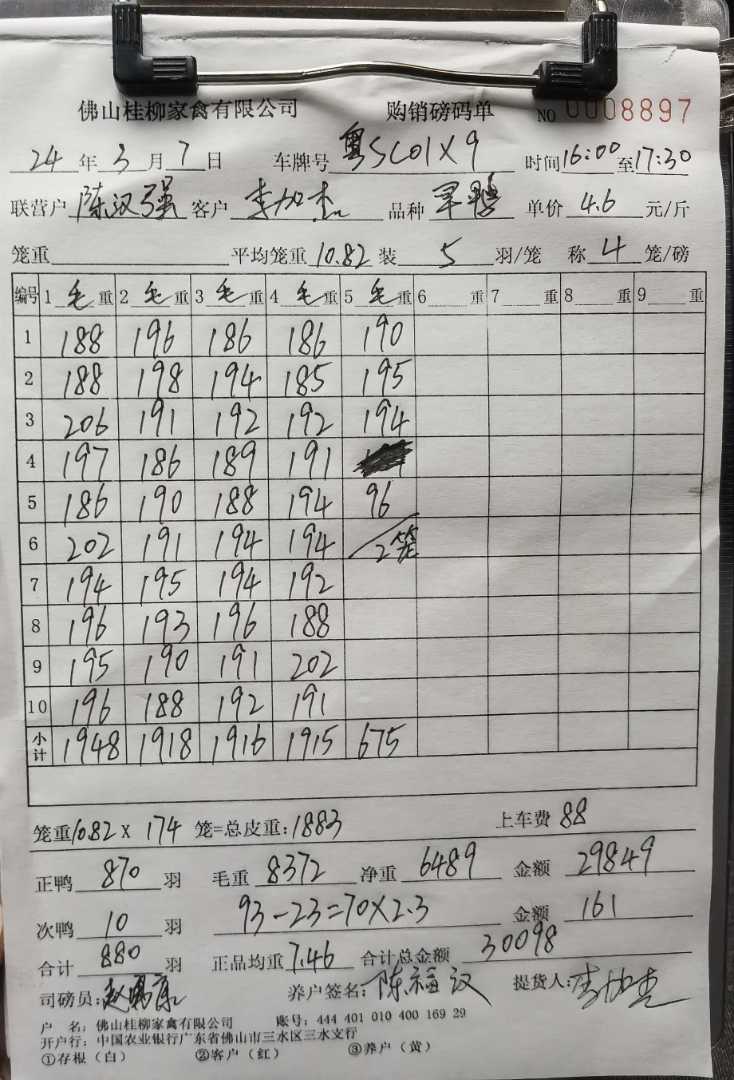 佛山桂柳家禽有限公司 购销磅码单 NO 0008897
24 年 3 月 7 日 车牌号 粤SC01X9 时间 16:00 至 17:30
联营户 陈汉强 客户 李加杰 品种 旱鸭 单价 4.6 元/斤
笼重 平均笼重 10.82 装 5 羽/笼 称 4 笼/磅
编号 1 毛 重 2 毛 重 3 毛 重 4 毛 重 5 毛 重 6 重 7 重 8 重 9 重
1 188 196 186 186 190
2 188 198 194 185 195
3 206 191 192 192 194
4 197 186 189 191
5 186 190 188 194 96
6 202 191 194 194 /2笼
7 194 195 194 192
8 196 193 196 188
9 195 190 191 202
10 196 188 192 191
小计 1948 1918 1916 1915 675
笼重 10.82 X 174 笼=总皮重: 1883 上车费 88
正鸭 870 羽 毛重 8372 净重 6489 金额 29849
次鸭 10 羽 93-23=70X2.3 金额 161
合计 880 羽 正品均重 7.46 合计总金额 30098
司磅员: 赵 康 养户签名: 陈福汉 提货人: 李加杰
户 名: 佛山桂柳家禽有限公司 账号: 444 401 010 400 169 29
开户行: 中国农业银行广东省佛山市三水区三水支行
①存根(白) ②客户(红) ③养户(黄)